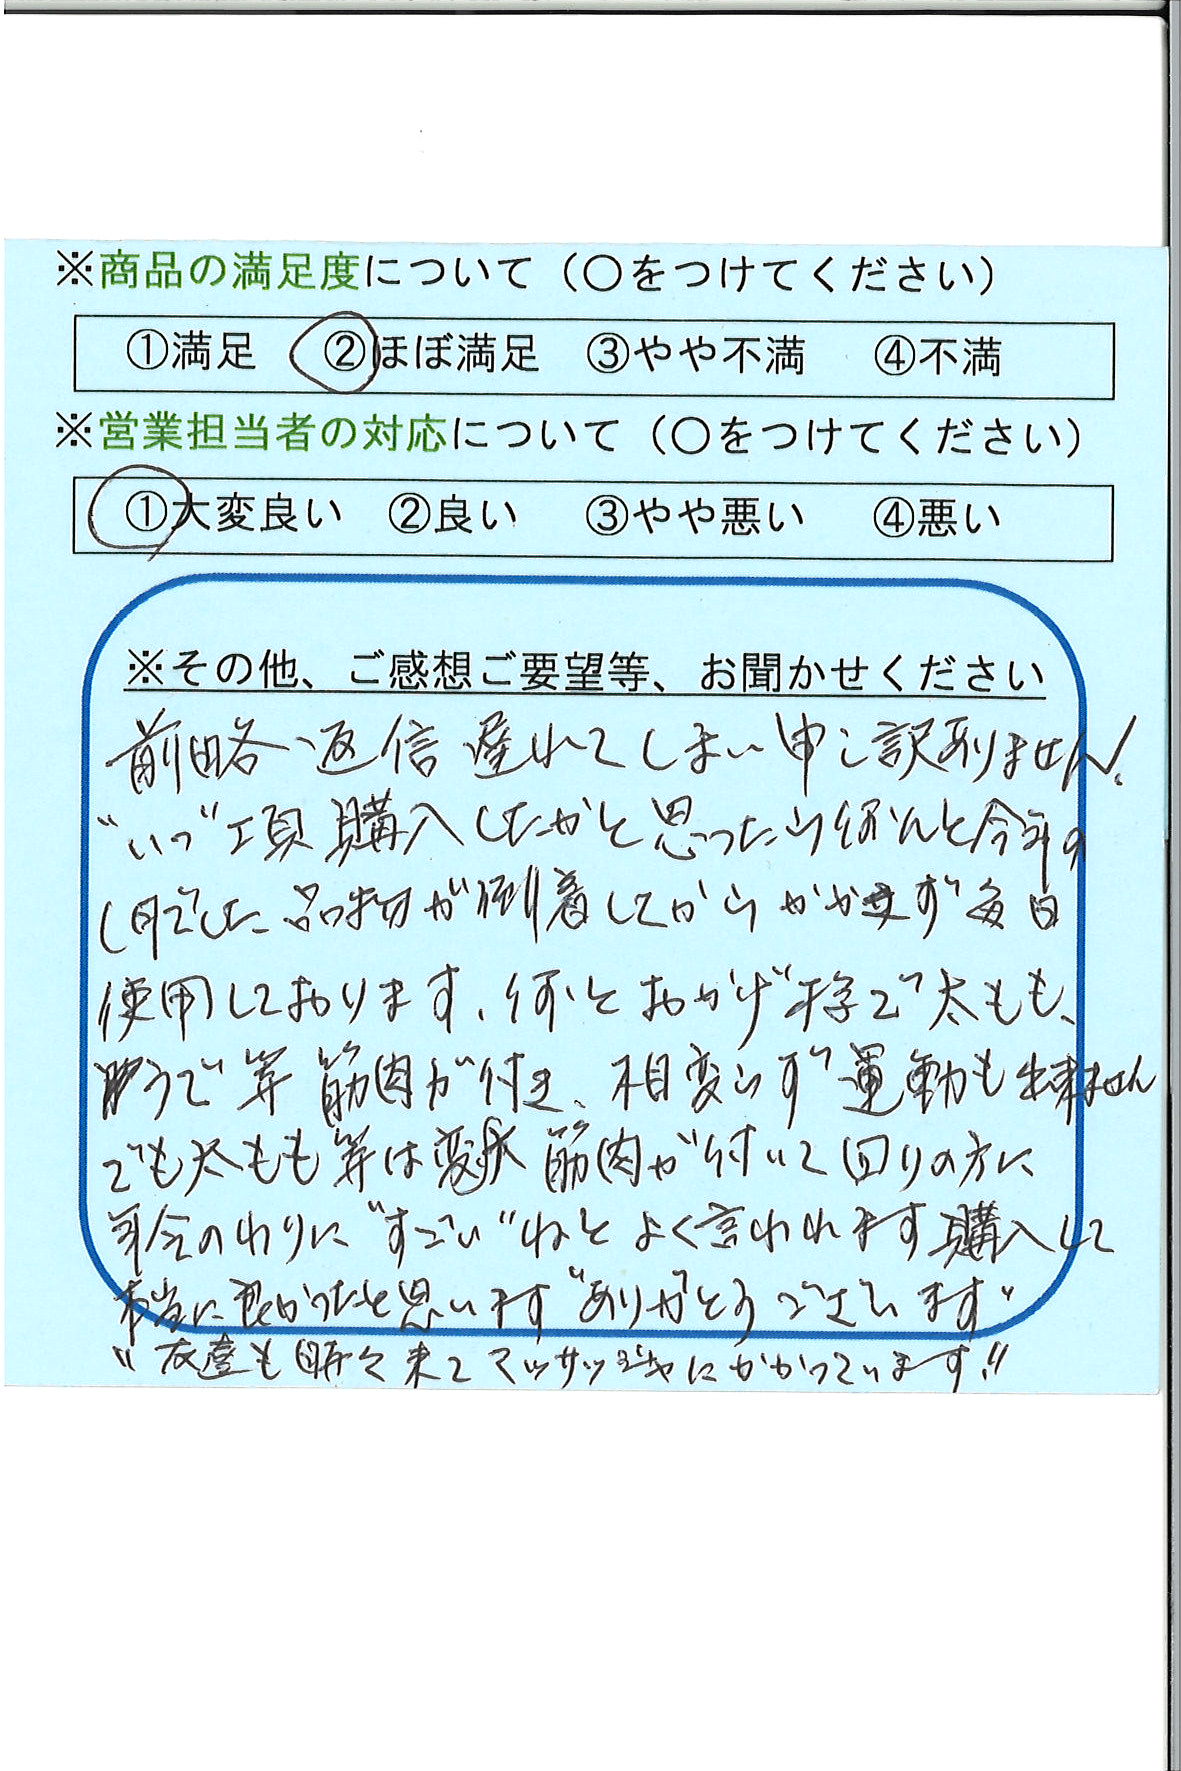 ※商品の満足度について（〇をつけてください）
①満足 ②ほぼ満足 ③やや不満 ④不満
※営業担当者の対応について（〇をつけてください）
①大変良い ②良い ③やや悪い ④悪い
※その他、ご感想ご要望等、お聞かせください
前略、返信遅れてしまい申し訳ありません!
"いつ"頃購入したかと思ったら何んと今年の
1月でした 品物が到着してからかかさず毎日
使用しております、何とおかげ様で太もも、
うで等筋肉が付き、相変らず運動も出来ません
でも太もも等は 筋肉が付いて回りの方に
年令のわりに"すごい"ねとよく言われます購入して
本当に良かったと思います"ありがとうございます"
"友達も時々来てマッサッジャにかかっています!!